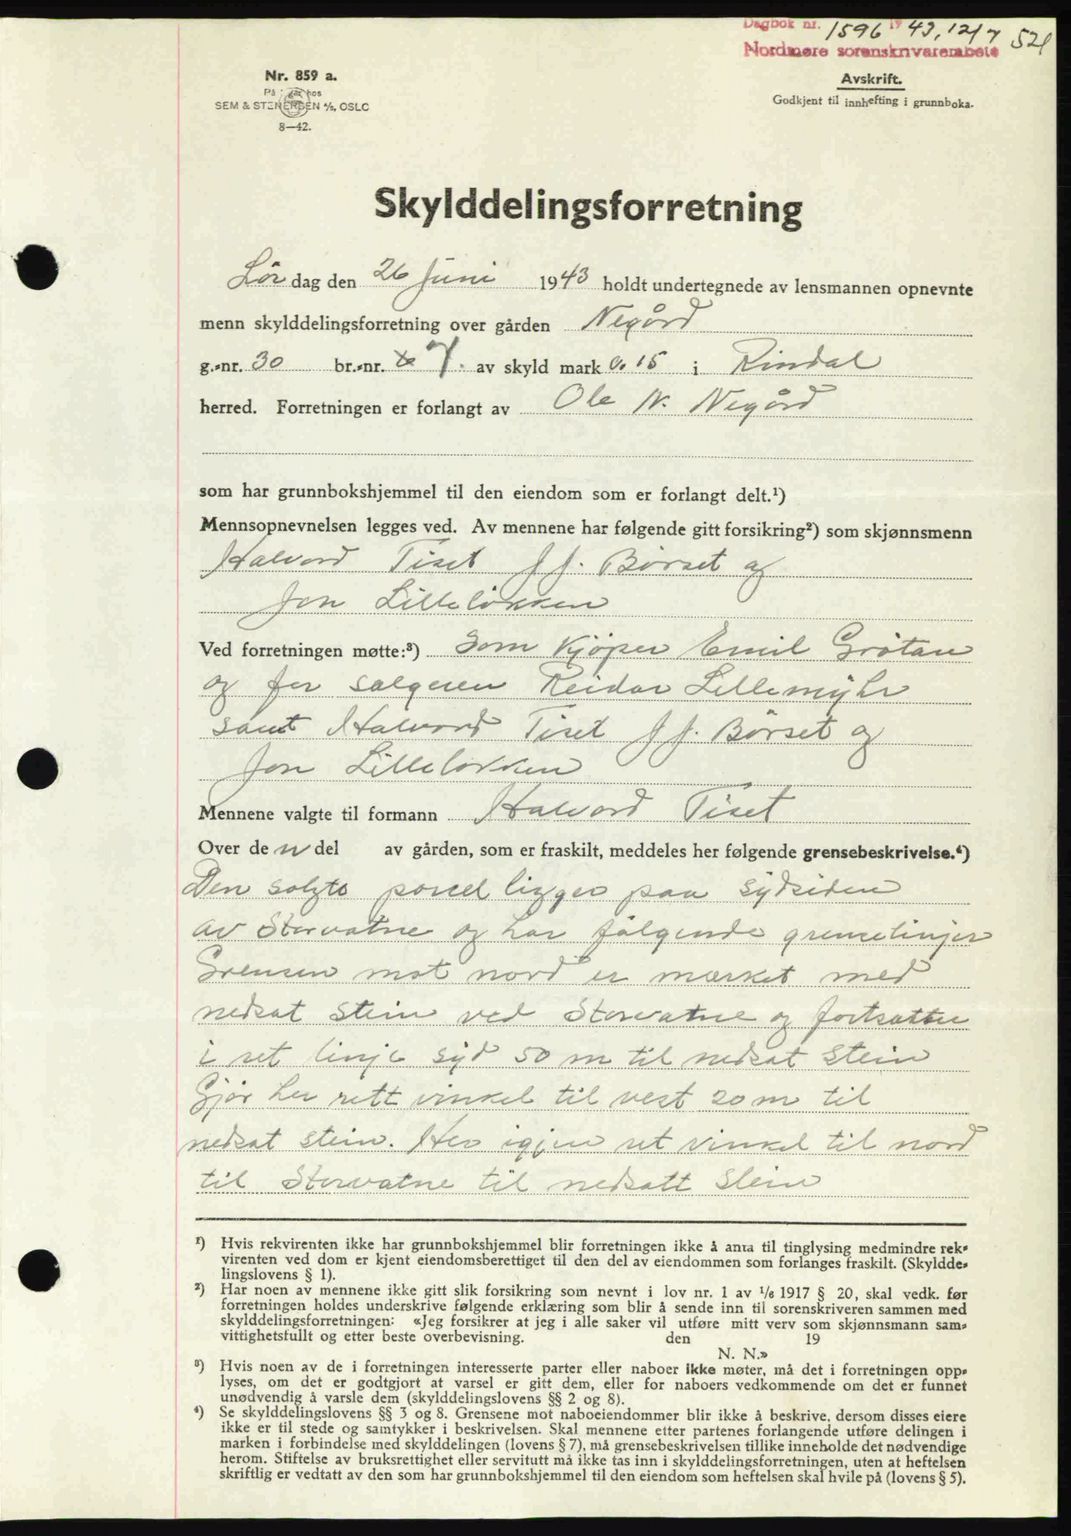 Dagbok nr. 1596 19 43, 12/7 521
Nordmøre sorenskrivarembete
Nr. 859 a.
På hos
SEM & STENERSEN A/S, OSLO
8—42.
Avskrift.
Godkjent til innhefting i grunnboka.
Skylddelingsforretning
Lør dag den 26 Juni 1943 holdt undertegnede av lensmannen opnevnte
menn skylddelingsforretning over gården Negård
g.-nr. 30 br.-nr. 7. av skyld mark 0.15 i Rindal
herred. Forretningen er forlangt av Ole N. Negård
som har grunnbokshjemmel til den eiendom som er forlangt delt.¹)
Mennsopnevnelsen legges ved. Av mennene har følgende gitt forsikring²) som skjønnsmenn
Halvord Tiset J J. Børset og
Jon Lilleløkken
Ved forretningen møtte:³) som kjøper Emil Grøtan
og for selgeren Reidar Lillemyhr
samt Halvord Tiset J J. Børset og
Jon Lilleløkken
Mennene valgte til formann Halvord Tiset
Over de n del av gården, som er fraskilt, meddeles her følgende grensebeskrivelse.⁴)
Den solgte parcel ligges paa sydsiden
av Storvatne og har følgende grenselinjer
Grensen mot nord er merket med
nedsat stein ved Storvatne og fortsætter
i ret linje syd 50 m til nedsat stein
Gjør her rett vinkel til vest 20 m til
nedsat stein. Her igjen ret vinkel til nord
til Storvatne til nedsatt stein
¹) Hvis rekvirenten ikke har grunnbokshjemmel blir forretningen ikke å anta til tinglysing medmindre rek-
virenten ved dom er kjent eiendomsberettiget til den del av eiendommen som forlanges fraskilt. (Skyldde-
lingslovens § 1).
²) Har noen av mennene ikke gitt slik forsikring som nevnt i lov nr. 1 av 1/6 1917 § 20, skal vedk. før
forretningen holdes underskrive følgende erklæring som blir å sende inn til sorenskriveren sammen med
skylddelingsforretningen: «Jeg forsikrer at jeg i alle saker vil utføre mitt verv som skjønnsmann sam-
vittighetsfullt og etter beste overbevisning. den 19
N. N.»
³) Hvis noen av de i forretningen interesserte parter eller naboer ikke møter, må det i forretningen opp-
lyses, om det er godtgjort at varsel er gitt dem, eller for naboers vedkommende om det er funnet
unødvendig å varsle dem (skylddelingslovens §§ 2 og 8).
⁴) Se skylddelingslovens §§ 3 og 8. Grensene mot naboeiendommer blir ikke å beskrive, dersom disses eiere
ikke er til stede og samtykker i beskrivelsen. Skal mennene etter partenes forlangende utføre delingen i
marken i forbindelse med skylddelingen (lovens § 7), må grensebeskrivelsen tillike inneholde det nødvendige
herom. Stiftelse av bruksrettighet eller servitutt må ikke tas inn i skylddelingsforretningen, uten at heftelsen
skriftlig er vedtatt av den som har grunnbokshjemmel til den eiendom som heftelsen skal hvile på (lovens § 5).